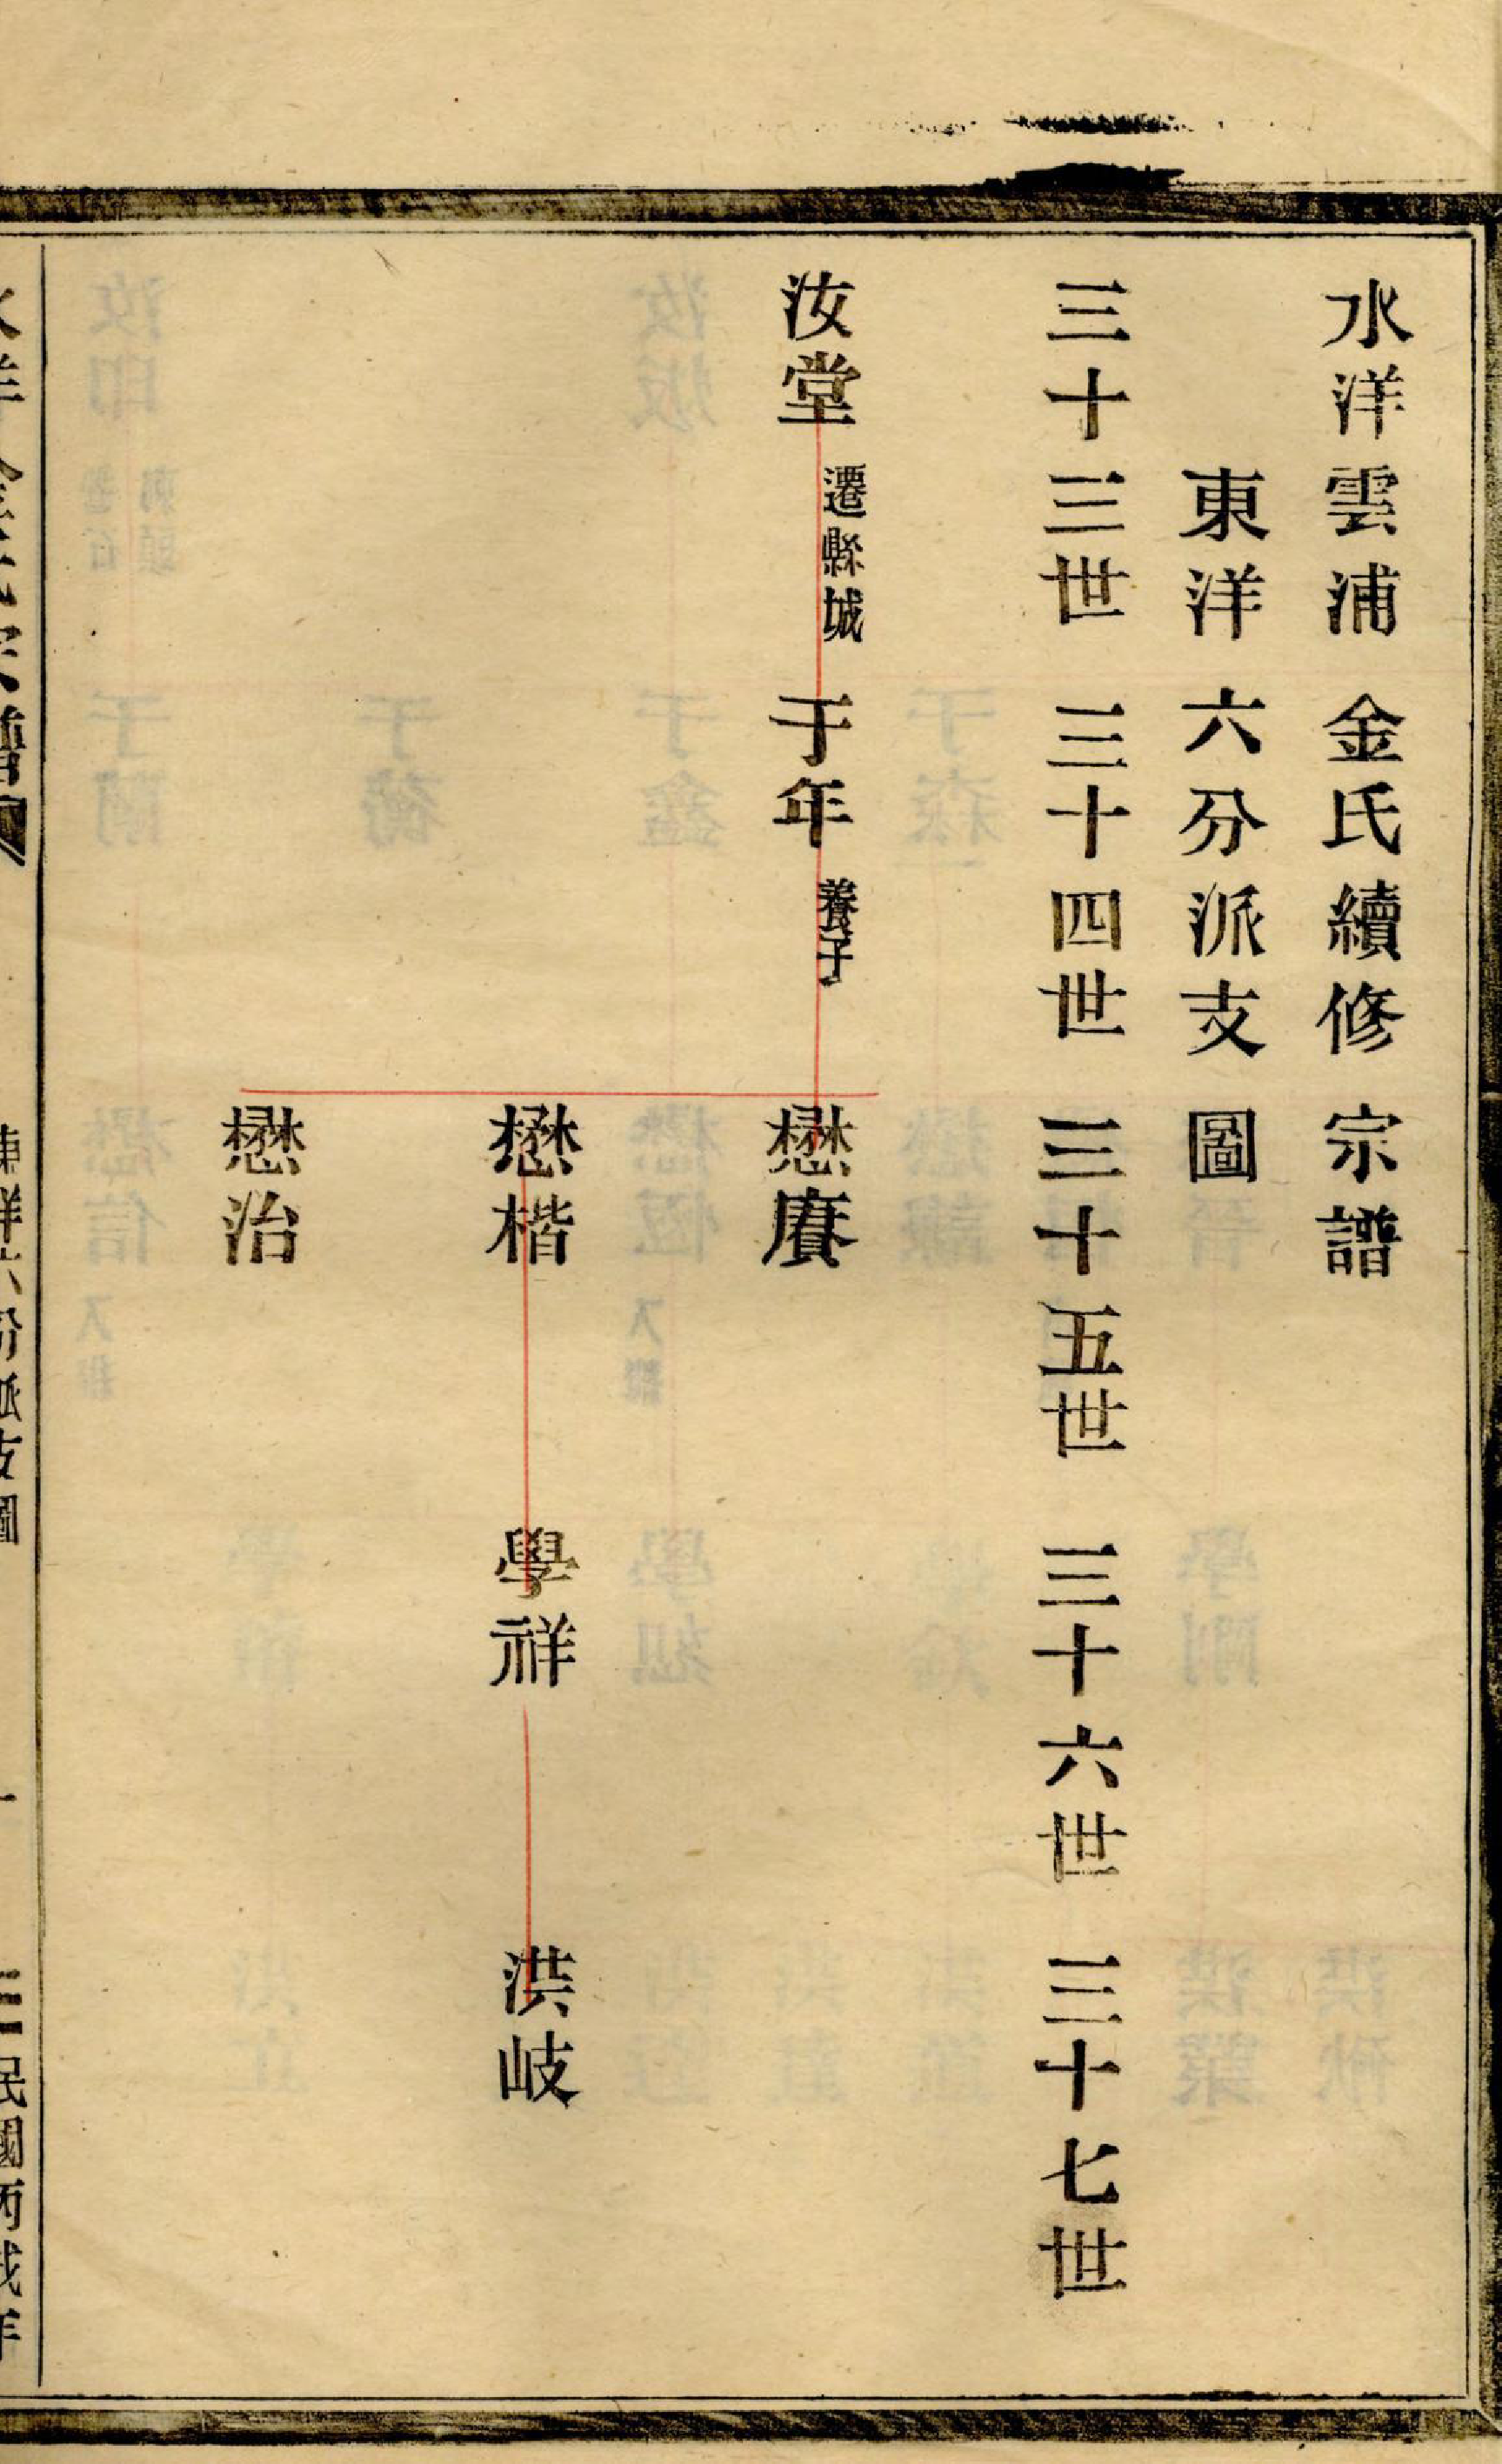 水洋雲浦金氏續修宗譜
東洋六分派支圖
三十三世 三十四世 三十五世 三十六世 三十七世
汝堂 遷縣城 于年 養子 懋賡
懋楷 學祥 洪岐
懋治
東洋六分派支圖
民國丙戌年